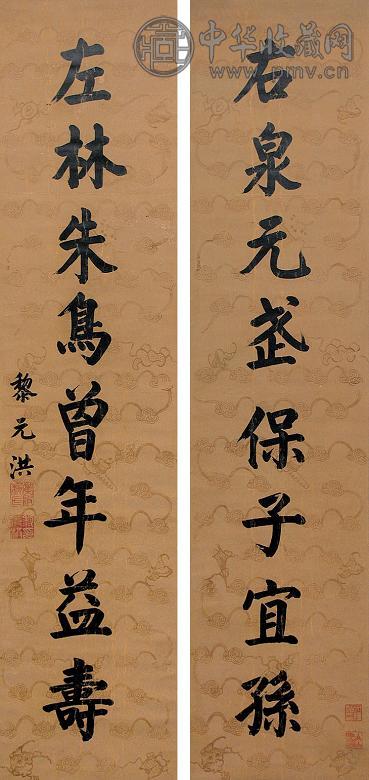 中华收藏网
www.pmv.cn
右泉元武保子宜孫
左林朱鳥曾年益壽
黎元洪